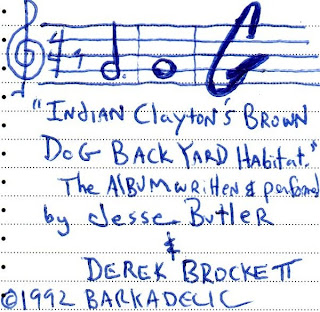 "INDIAN ClAYTON'S BROWN
DOG BACK YARD HABiTAT."
The AlBUM WRiTTEN & performed
by Jesse BUTLER
&
DEREK BROCKETT
©1992 BARKADELIC